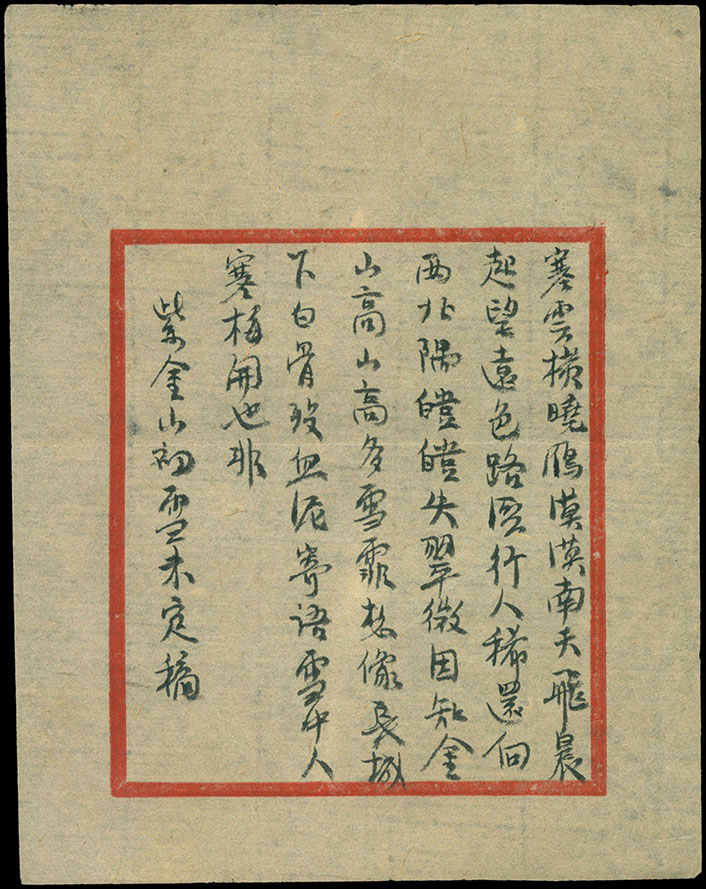 寒雲橫曉鴈漠漠南天飛晨
起望遠色路濕行人稀還向
西北隅皚皚失翠微因知金
山高山高多雪霏想像長城
下白骨沒血泥寄語雪中人
寒梅開也非
紫金山初雪未定稿